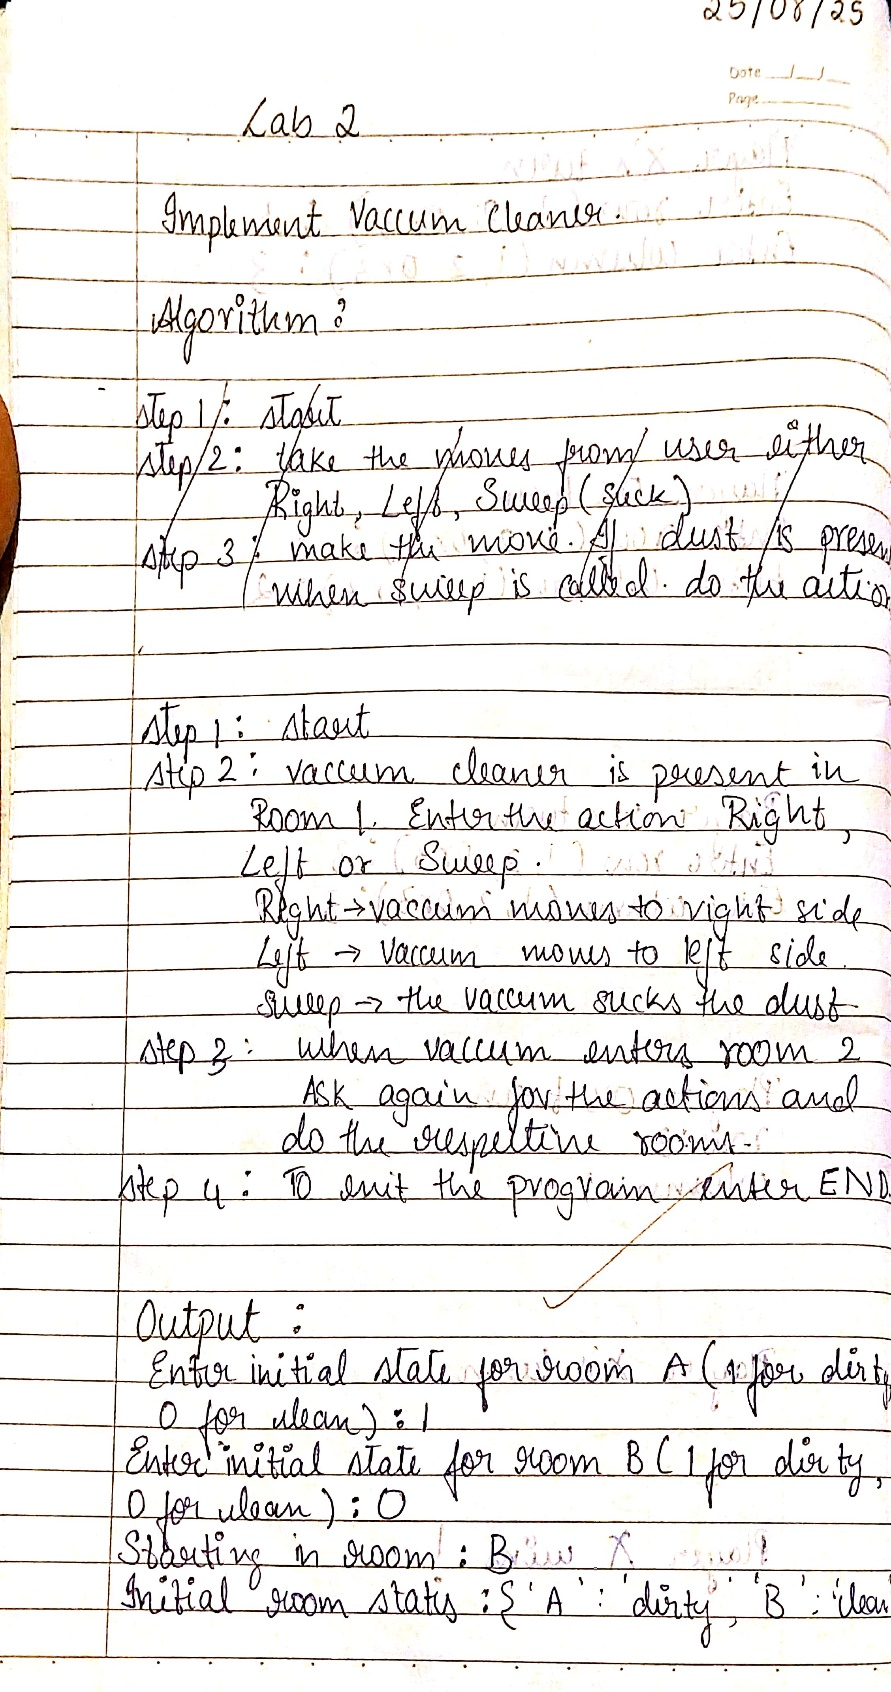 25/08/25
Date
Page
Lab 2
Implement Vaccum Cleaner.
Algorithm :
step 1 : start
step 2 : take the moves from user either
Right, Left, Sweep (suck)
step 3 : make the move. If dust is presen
when sweep is called. do the actio
step 1 : start
step 2 : vaccum cleaner is present in
Room 1. Enter the action Right,
Left or Sweep.
Right → vaccum moves to right side
Left → vaccum moves to left side.
sweep → the vaccum sucks the dust
step 3 : when vaccum enters room 2
Ask again for the actions and
do the respective rooms.
step 4 : To exit the program enter END.
Output :
Enter initial state for room A (1 for dirty
0 for clean) : 1
Enter initial state for room B (1 for dirty,
0 for clean) : 0
Starting in room : B
Initial room statis : { 'A' : 'dirty', 'B' : 'clean